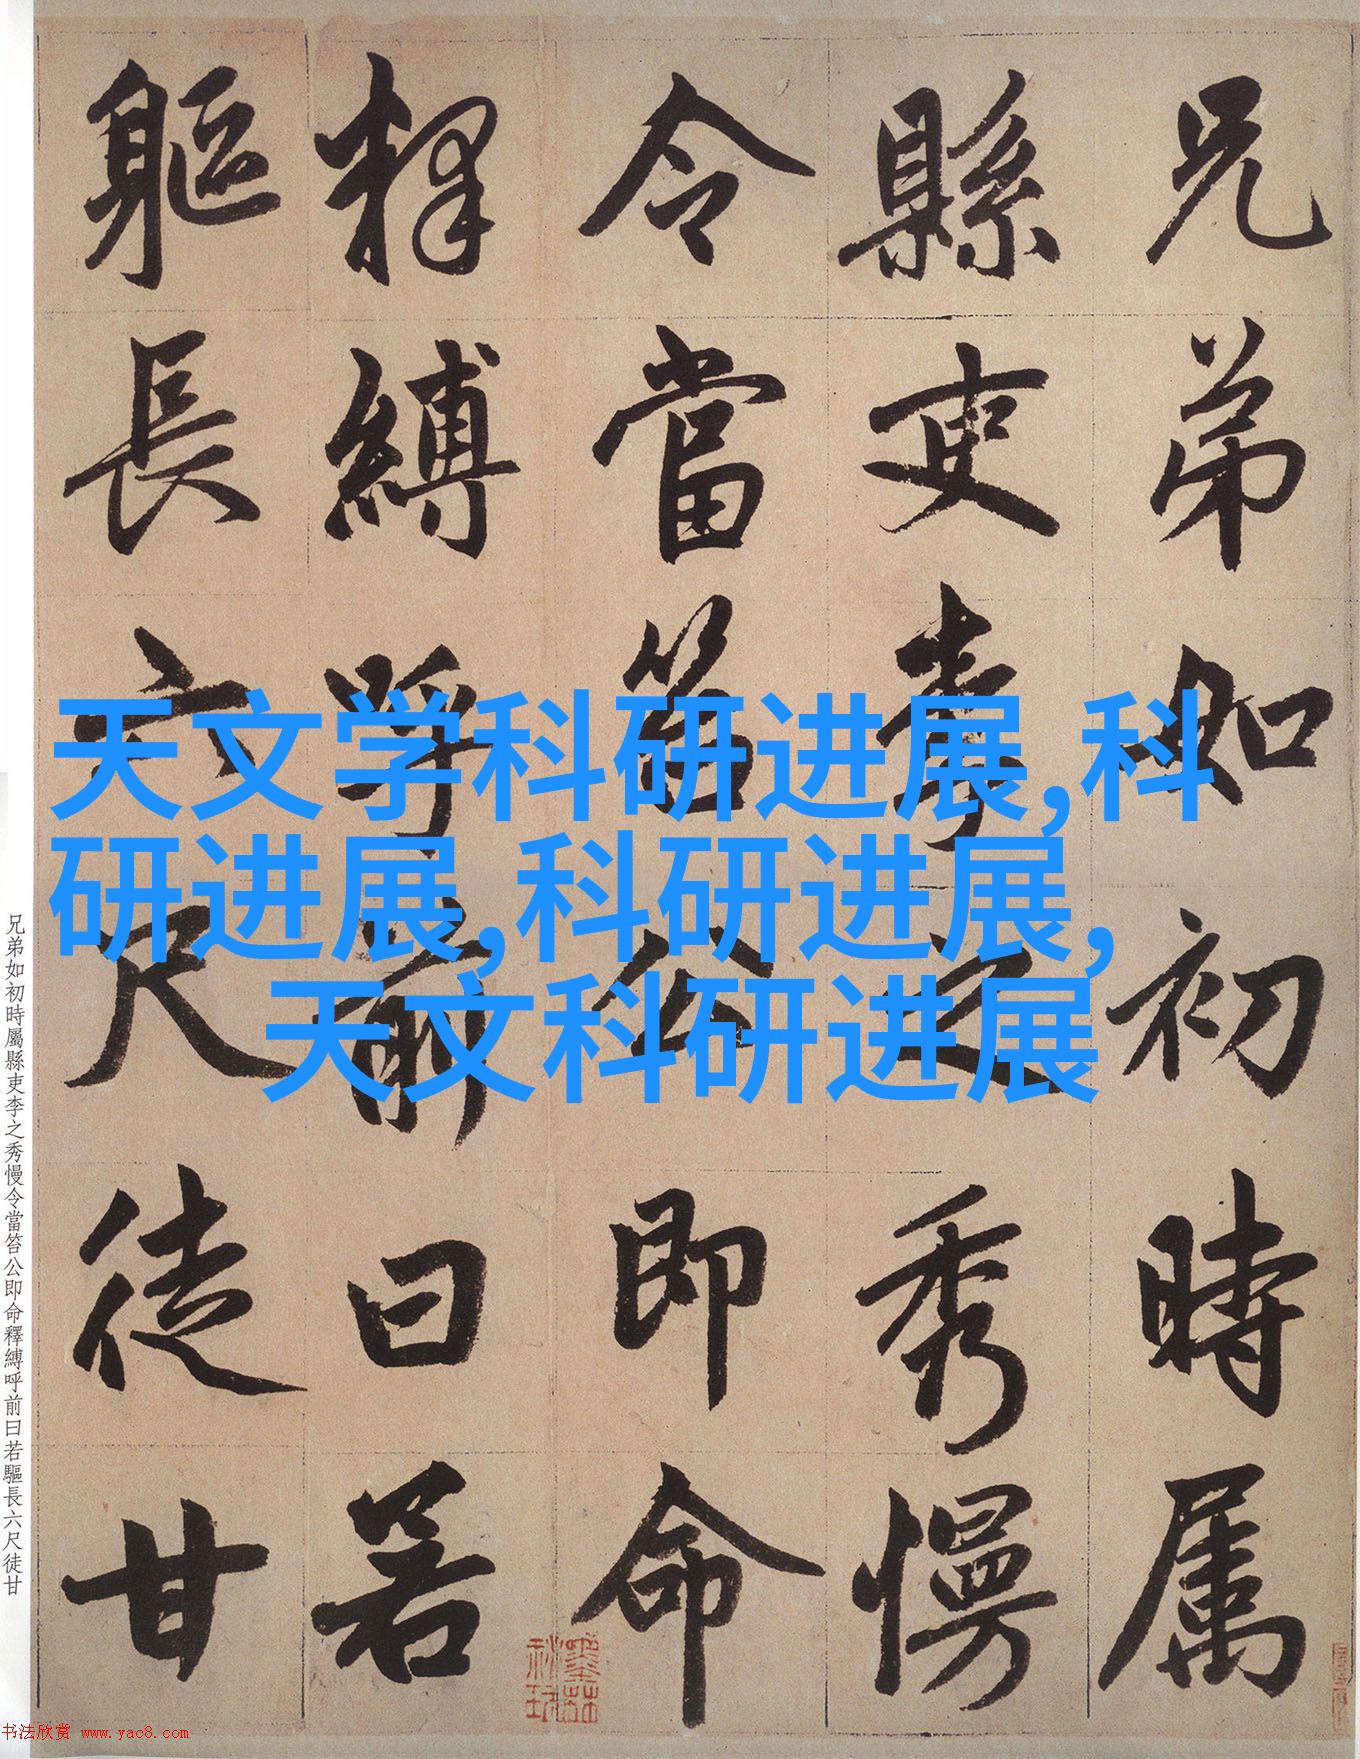 兄弟如初時属
縣吏李之秀慢
令當笞公即命
釋縛呼前曰若
軀長六尺徒甘
天文学科研进展,科
研进展,科研进展,
天文科研进展
兄弟如初時屬縣吏李之秀慢令當笞公即命釋縛呼前曰若驅長六尺徒甘
书法欣赏 www.yac8.com